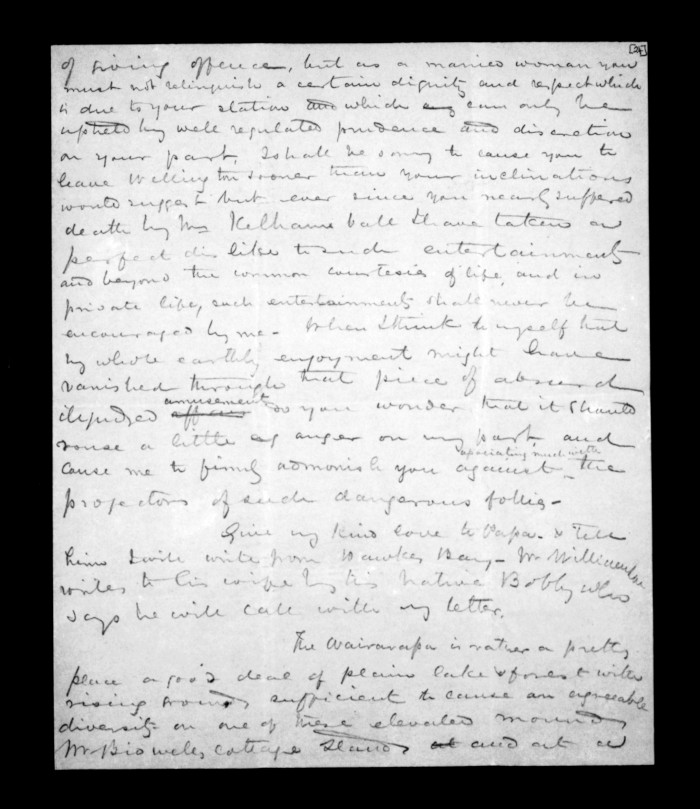 of giving offence, but as a married woman you
must not relinquish a certain dignity and respect which
is due to your station and which can only be
upheld by well regulated prudence and discretion
on your part, I shall be sorry to cause you to
leave Wellington sooner than your inclinations
would suggest but ever since you nearly suffered
death by Mrs Kelhams ball I have taken a
perfect dislike to such entertainments
and beyond the common courtesies of life, and in
private life, such entertainments shall never be
encouraged by me - When I think to myself that
my whole earthly enjoyment might have
vanished through that piece of absurd
amusement do you wonder that it should
rouse a little anger on my part, and
cause me to firmly admonish you against associating much with the
projectors of such dangerous follies -
Give my kind love to Papa - & tell
him I will write from Hawkes Bay -
writes to his wife by his native Bobby who
says he will call with my letter.
The Wairarapa is rather a pretty
place a good deal of plain lake & forest with
rising grounds sufficient to cause an agreeable
diversity on one of these elevated mounds
Mr Bidwells cottage stands and at a